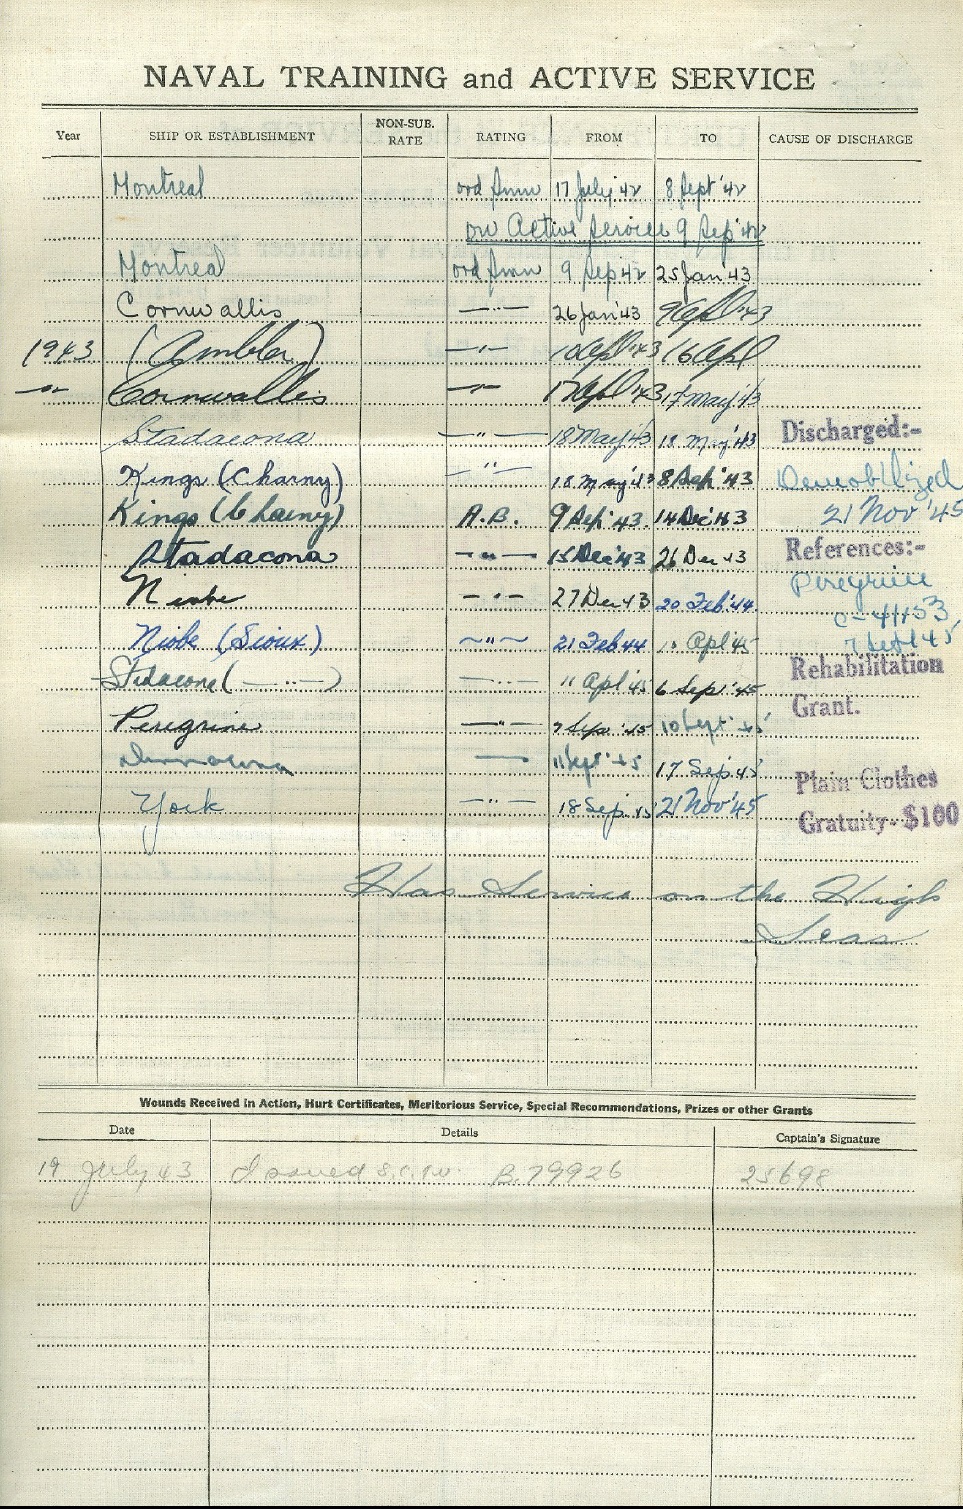 NAVAL TRAINING and ACTIVE SERVICE
Year SHIP OR ESTABLISHMENT NON-SUB. RATE RATING FROM TO CAUSE OF DISCHARGE
Montreal ord smn 17 July '42 8 Sept '42
on Active Service 9 Sep '42
Montreal ord smn 9 Sep 42 25 Jan '43
Cornwallis —"— 26 Jan '43 9 Apl '43
1943 (Ambler) —"— 10 Apl '43 16 Apl
—"— Cornwallis —"— 17 Apl '43 17 May '43
Stadacona —"— 18 May '43 18 May '43 Discharged:-
Kings (Charny) —"— 18 May '43 8 Sep '43 Demobilized
Kings (Charny) A.B. 9 Sep '43. 14 Dec '43 21 Nov '45
Stadacona —"— 15 Dec '43 26 Dec 43 References:-
Niobe —"— 27 Dec 43 20 Feb '44. Peregrine
C-41153
Niobe (Sioux) ~"~ 21 Feb 44 10 Apl 45 7 Sept 45
Stadacona (—"—) —"— 11 Apl '45 6 Sep '45 Rehabilitation
Grant.
Peregrine —"— 7 Sep '45 10 Sept '45
— 11 Sept '45 17 Sep. 45 Plain Clothes
York —"— 18 Sep. 45 21 Nov '45 Gratuity- $100
Has Service on the High
Seas
Wounds Received in Action, Hurt Certificates, Meritorious Service, Special Recommendations, Prizes or other Grants
Date Details Captain's Signature
19 July 43 Issued B.79926 25698